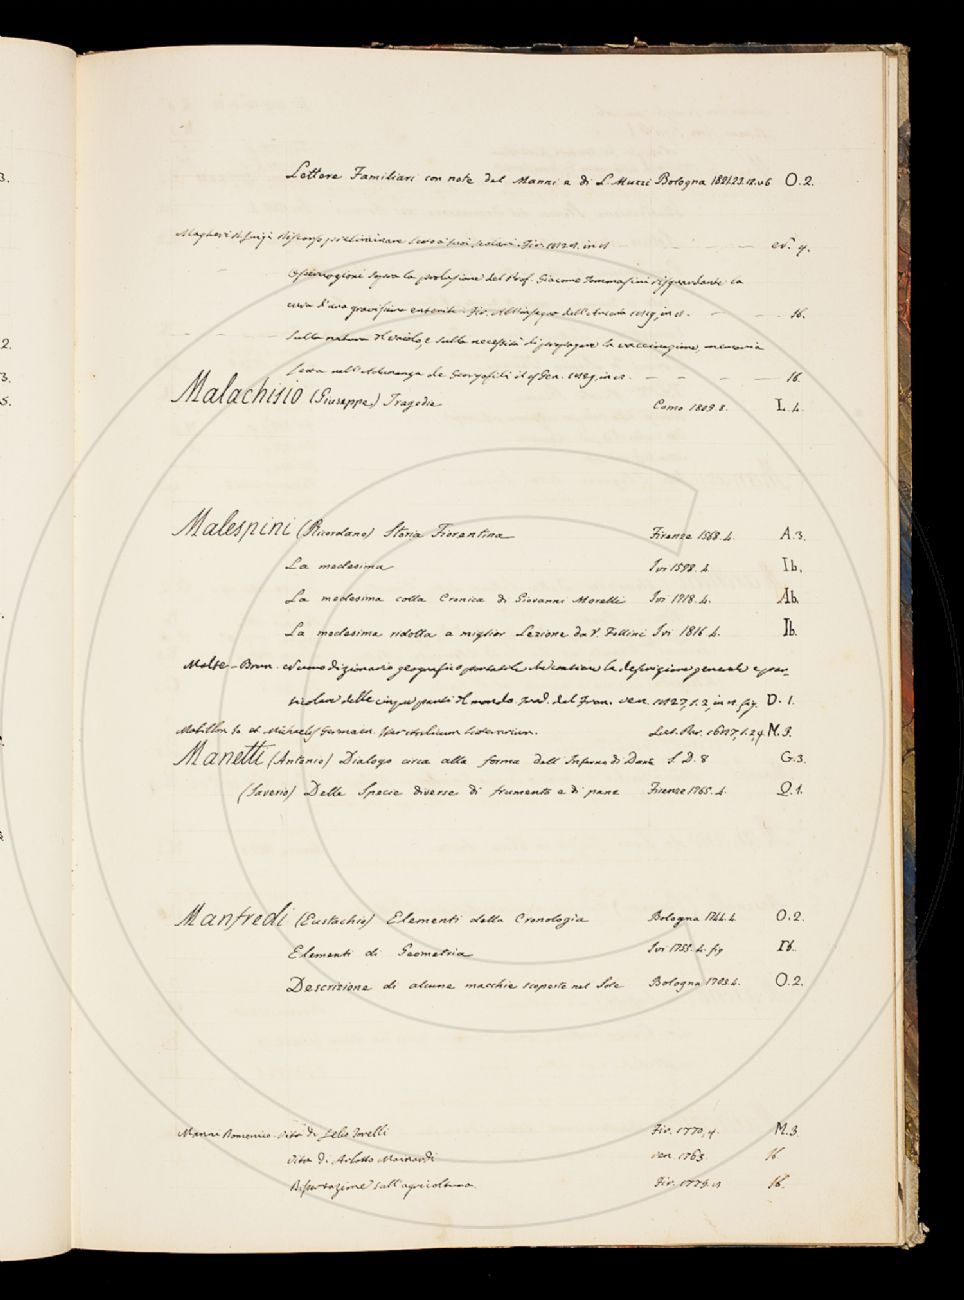 Lettere Familiari con note del Manni e di L. Muzzi Bologna 1821.23. O.2.
Magheri Luigi Discorso preliminare Fir. in 8
Osservazioni sopra la prolusione del Prof. Giacomo Tommasini risguardante la
cura d'una gravissima enterite. Fir. All'Insegna dell'Ancora 1819, in 8. — — Ib.
Sulla natura del vaiolo, e sulla necessità di propagare la vaccinazione, memoria
letta nell'Adunanza de Georgofili il Gen. in 8. — — — — Ib.
Malachisio (Giuseppe) Tragedie Como 1809. 8. L.4.
Malespini (Ricordano) Storia Fiorentina Firenze 1568. 4. A.3.
La medesima Ivi 1598. 4. Ib.
La medesima colla Cronica di Giovanni Morelli Ivi 1718. 4. Ib.
La medesima ridotta a miglior Lezione da V. Follini Ivi 1816 4. Ib.
Malte-Brun. Nuovo dizionario geografico portatile che contiene la descrizione generale e par-
ticolare delle cinque parti del mondo. trad. dal Fran. Ven. 1827, t. 2, in 8. fig. D. 1.
Mabillon Io. et Michaelis Germain. Iter Italicum Litterarium. Lut. Par. 1687, t. 2, 4. N.3.
Manetti (Antonio) Dialogo circa alla forma dell'Inferno di Dante S. D. 8 G.3.
(Saverio) Delle Specie diverse di frumento e di pane Firenze 1765. 4. Q.1.
Manfredi (Eustachio) Elementi della Cronologia Bologna 1744. 4. O.2.
Elementi di Geometria Ivi 1755. 4. fig Ib.
Descrizione di alcune macchie scoperte nel Sole Bologna 1703. 4. O.2.
Manni Domenico. Vita di Lelio Torelli Fir. 1770, 4. M.3.
Vita di Arlotto Mainardi Ven. 1763. Ib.
Dissertazione sull'agricoltura Fir. 1773. 8 Ib.